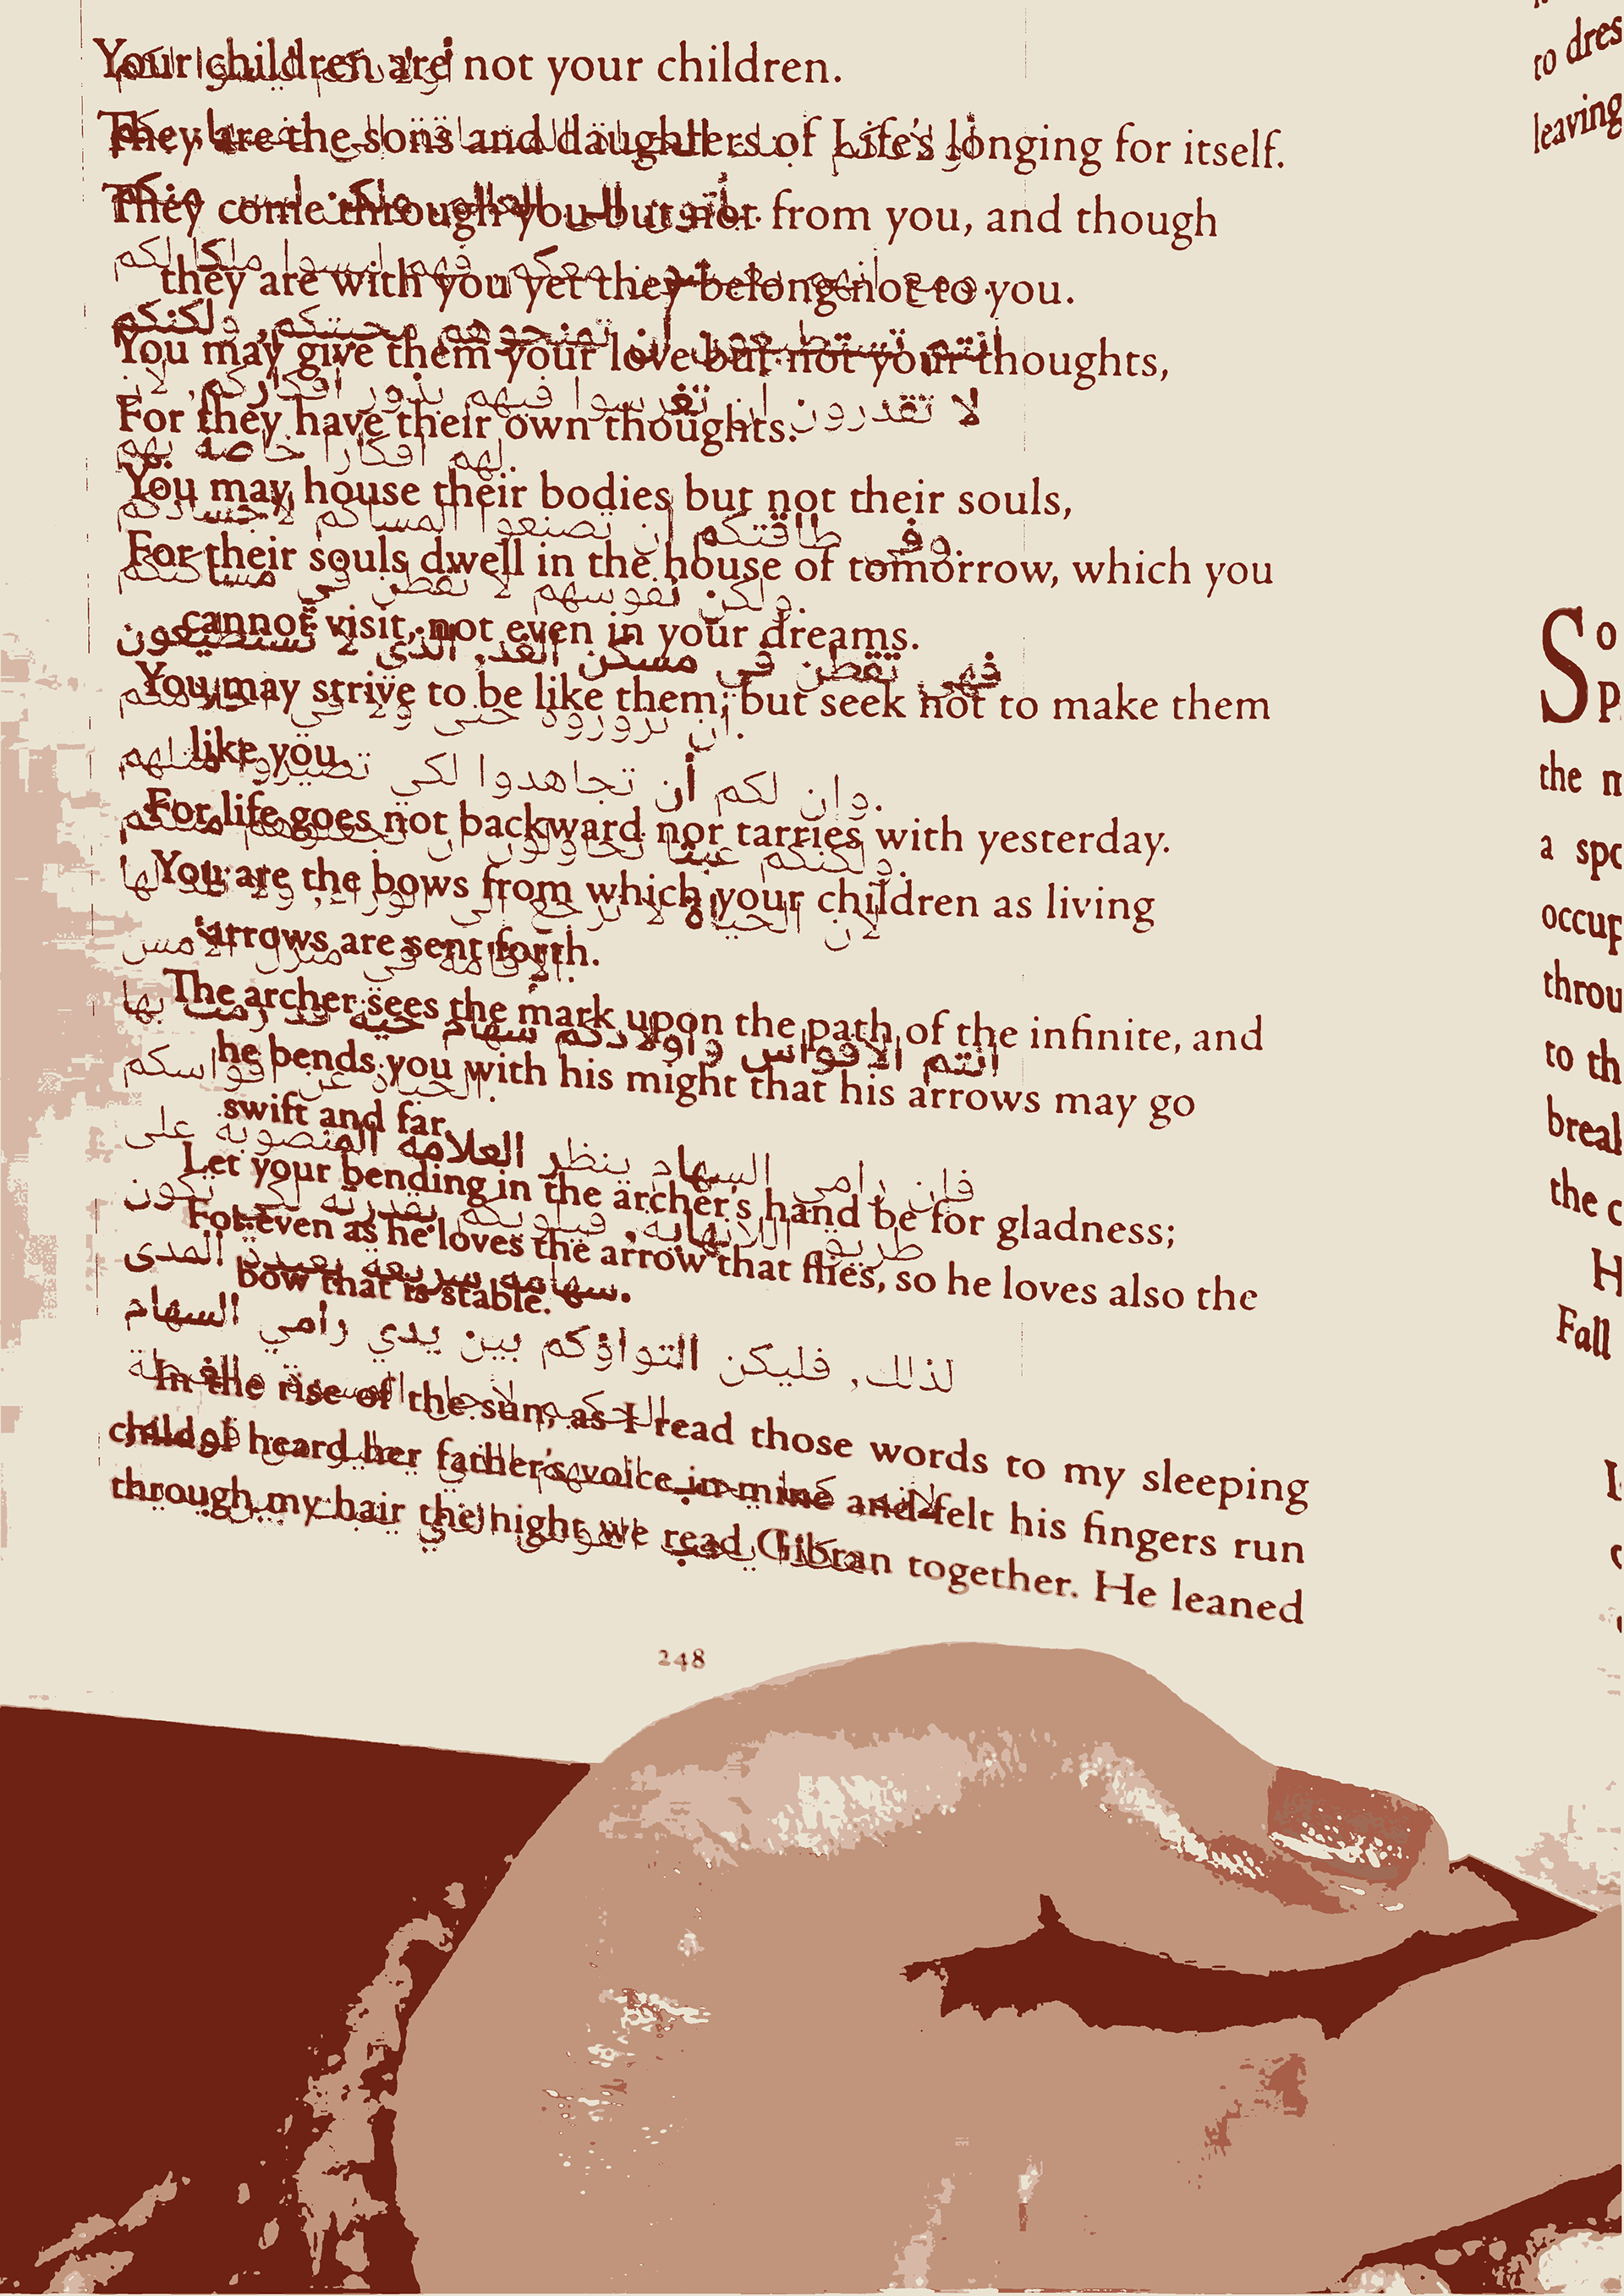 Your children are not your children.
They are the sons and daughters of Life's longing for itself.
They come through you but not from you, and though
they are with you yet they belong not to you.
You may give them your love but not your thoughts,
For they have their own thoughts.
You may house their bodies but not their souls,
For their souls dwell in the house of tomorrow, which you
cannot visit, not even in your dreams.
You may strive to be like them, but seek not to make them
like you.
For life goes not backward nor tarries with yesterday.
You are the bows from which your children as living
arrows are sent forth.
The archer sees the mark upon the path of the infinite, and
he bends you with his might that his arrows may go
swift and far.
Let your bending in the archer's hand be for gladness;
For even as he loves the arrow that flies, so he loves also the
bow that is stable.
In the rise of the sun, as I read those words to my sleeping
child, I heard her father's voice in mine and felt his fingers run
through my hair the night we read Gibran together. He leaned
248
ومع انهم معكم, فهم ليسوا ملكا لكم.
انتم تستطيعون ان تمنحوهم محبتكم, ولكنكم
لا تقدرون ان تغرسوا فيهم بذور افكاركم, لان
لهم افكارا خاصة بهم.
وفي طاقتكم ان تصنعوا المساكن لاجسادكم
ولكن نفوسهم لا تقطن في مساكنكم.
فهي تقطن في مسكن الغد, الذي لا تستطيعون
ان تزوروه حتى ولا في احلامكم.
وان لكم أن تجاهدوا لكي تصيروا مثلهم.
ولكنكم عبثا تحاولون ان تجعلوهم مثلكم.
لان الحياة لا ترجع الى الوراء, ولا لها
الاقامة في منزل الامس.
انتم الاقواس واولادكم سهام حية قد رمت بها
الحياة عن اقواسكم.
فإن رامي السهام ينظر العلامة المنصوبة على
طريق اللانهاية, فيلويكم بقدرته لكي تكون
سهامه سريعة بعيدة المدى.
لذلك, فليكن التواؤكم بين يدي رامي السهام
الحكيم لاجل المسرة والغبطة
to dres
leaving
So
the
a
throu
to th
the
Fall